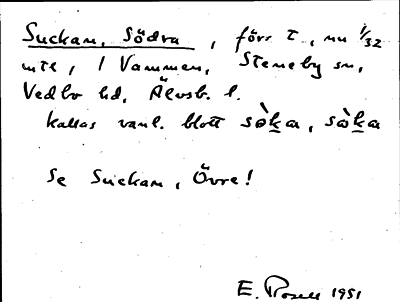 Suckan, Södra, förr t., nu 1/32
mtl, i Vammen, Steneby sn,
Vedbo hd, Älvsb. l.
kallas vanl. blott sòka, sòka
Se Suckan, Övre!
E. Rosell 1951